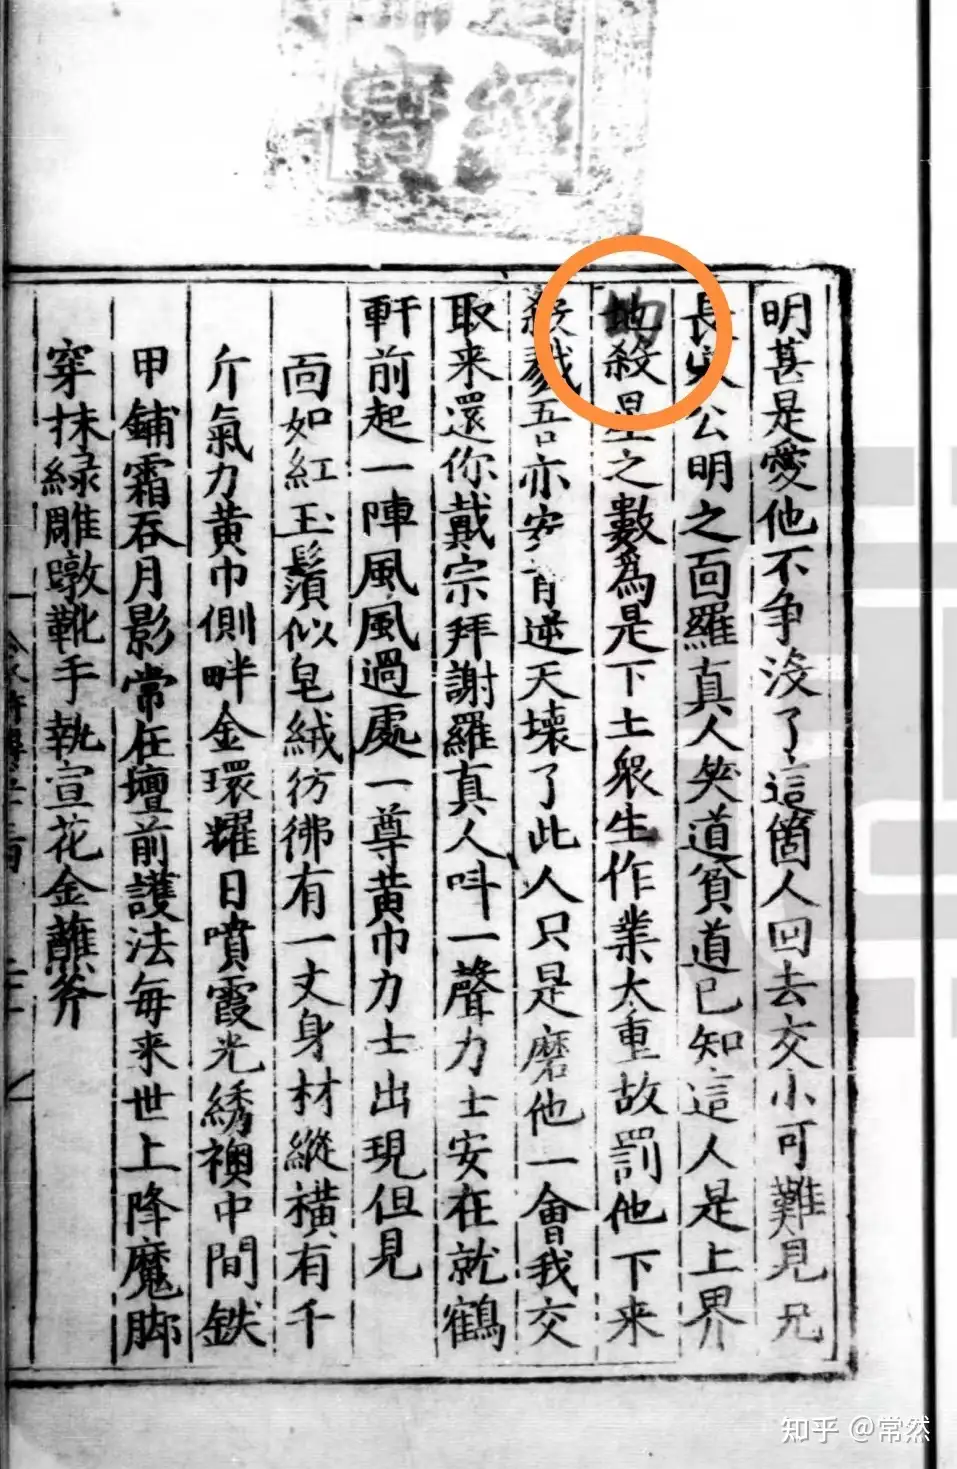 經
寶
明甚是愛他不争沒了這箇人回去交小可難見兄
長宋公明之面羅真人笑道貧道已知這人是上界
地殺星之數為是下土衆生作業太重故罰他下来
殺戮吾亦安肯逆天壊了此人只是磨他一會我交
取来還你戴宗拜謝羅真人呌一聲力士安在就鶴
軒前起一陣風風過處一尊黄巾力士出現但見
面如紅玉鬚似皂絨彷彿有一丈身材縱横有千
斤氣力黄巾側畔金環耀日噴霞光綉襖中間鉄
甲鋪霜吞月影常在壇前護法每来世上降魔脚
穿抹緑雕墩靴手執宣花金蘸斧
知乎 @常然